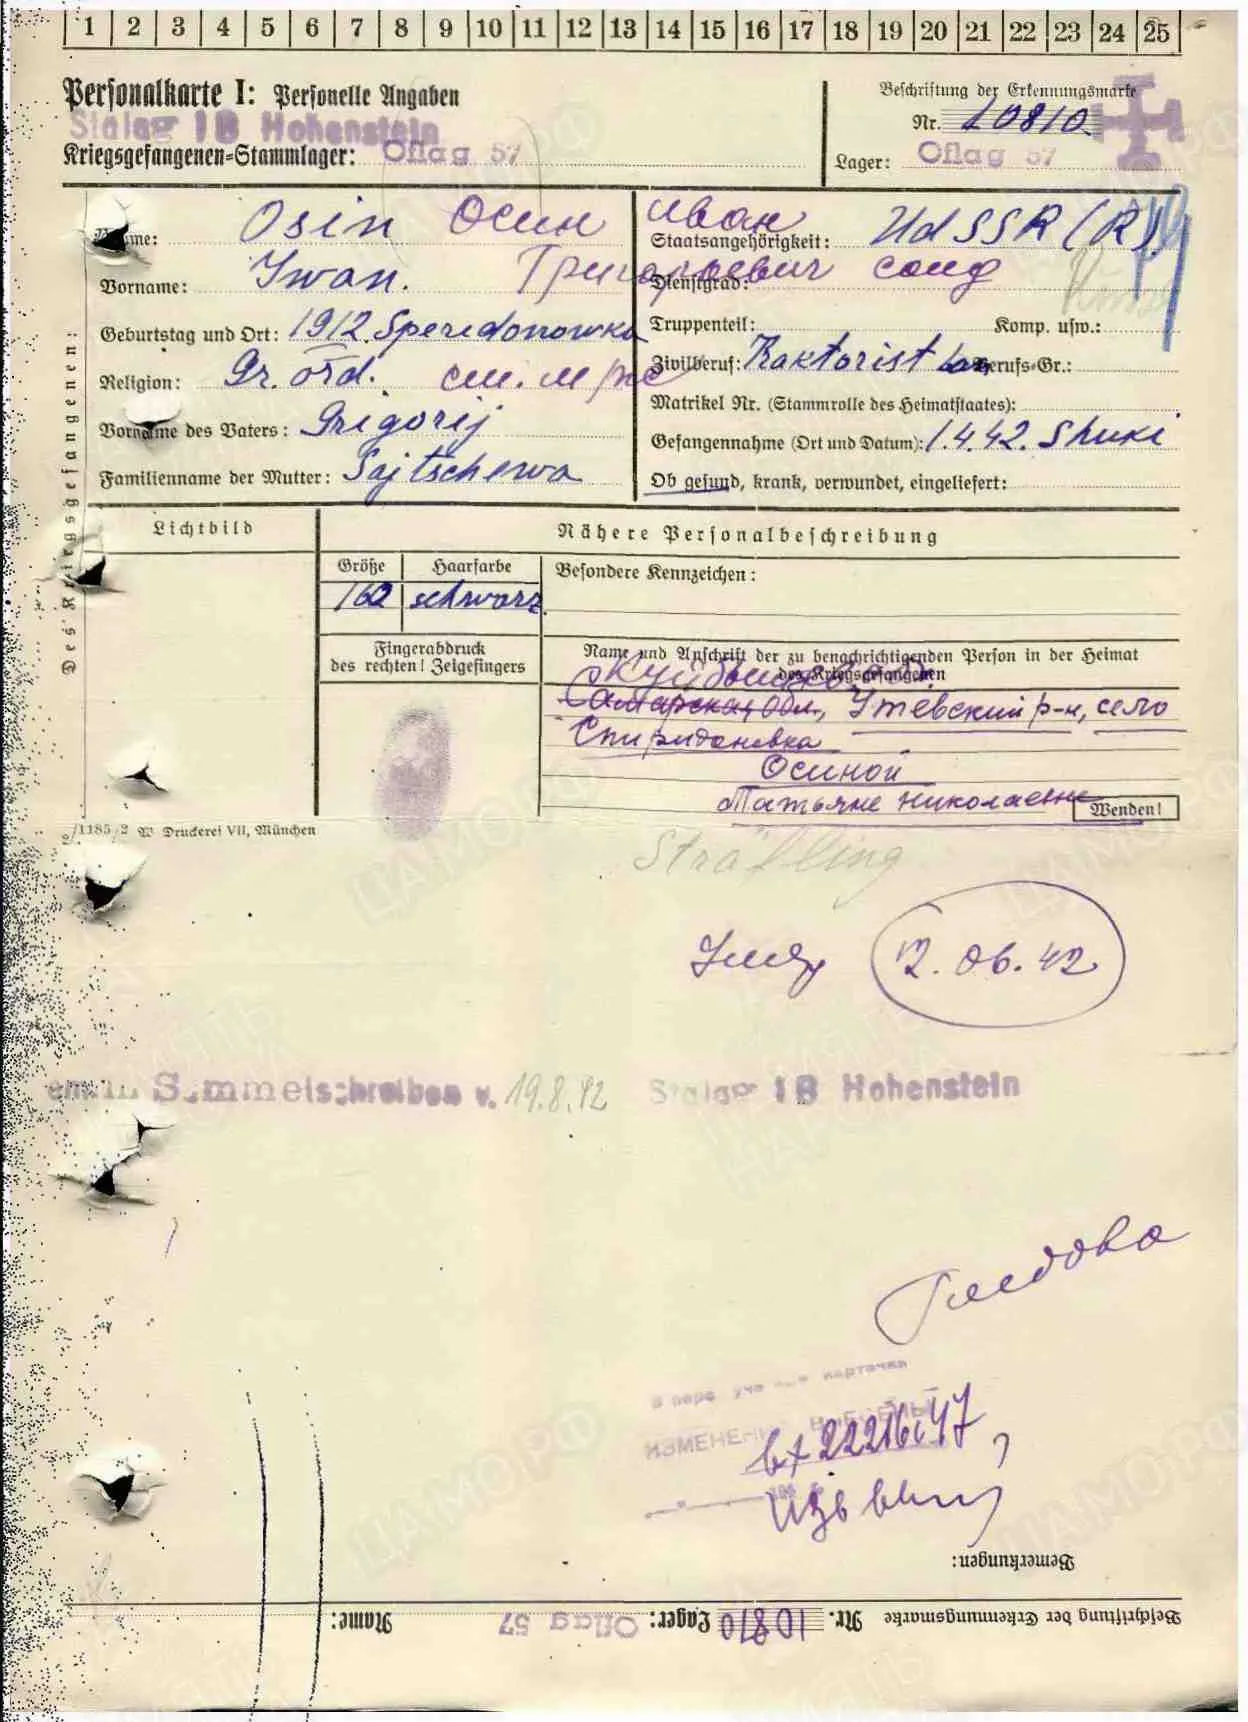 1 2 3 4 5 6 7 8 9 10 11 12 13 14 15 16 17 18 19 20 21 22 23 24 25
Personalkarte I: Personelle Angaben
Stalag IB Hohenstein
Kriegsgefangenen=Stammlager: Oflag 57
Beschriftung der Erkennungsmarke
Nr. 10810
Lager: Oflag 57
Des Kriegsgefangenen:
Name: Osin Осин Иван
Vorname: Iwan. Григорьевич солд
Geburtstag und Ort: 1912. Speredonowka
Religion: Gr. ord.
Vorname des Vaters: Grigorij
Familienname der Mutter: Sajtschewa
Staatsangehörigkeit: UdSSR (R).
Dienstgrad:
Truppenteil: Komp. usw.:
Zivilberuf: Traktorist Berufs=Gr.:
Matrikel Nr. (Stammrolle des Heimatstaates):
Gefangennahme (Ort und Datum): 1.4.42. Shuki
Ob gesund, krank, verwundet, eingeliefert:
Lichtbild
Nähere Personalbeschreibung
Größe Haarfarbe Besondere Kennzeichen:
162 schwarz.
Fingerabdruck
des rechten! Zeigefingers
Name und Anschrift der zu benachrichtigenden Person in der Heimat
des Kriegsgefangenen
Самарская обл, Утевский р-н, село
Спиридоновка
Осиной
Татьяне Николаевне
Wenden!
/1185/2 Druckerei VII, München
Sträfling
Умер 12.06.42
Sammelschreiben v. 19.8.42 Stalag IB Hohenstein
Глебова
карточка
ИЗМЕНЕНИЯ ВНЕСЕНЫ
вх 22216.47
Bemerkungen:
Beschriftung der Erkennungsmarke Nr. 10810 Lager: Oflag 57 Name: